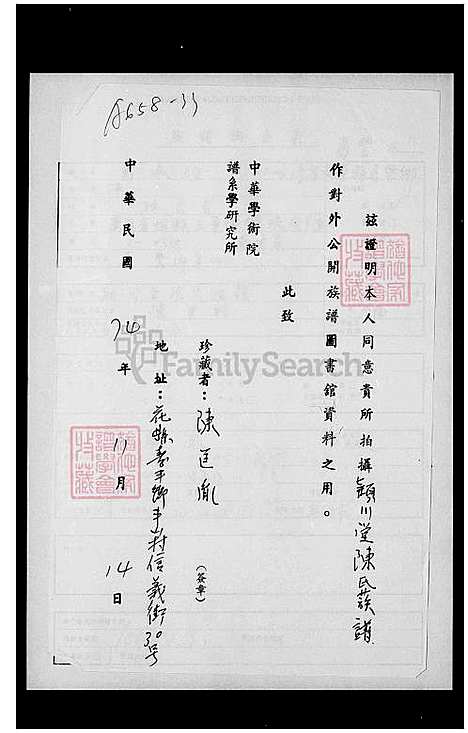 A658-33
茲證明本人同意貴所拍攝穎川堂陳氏蔟譜
作對外公開族譜圖書館資料之用。
此致
中華學術院
譜系學研究所
珍藏者：陳匡胤
(簽章)
地址：花縣壽丰鄉丰村信義街30號
中華民國74年11月14日
FamilySearch